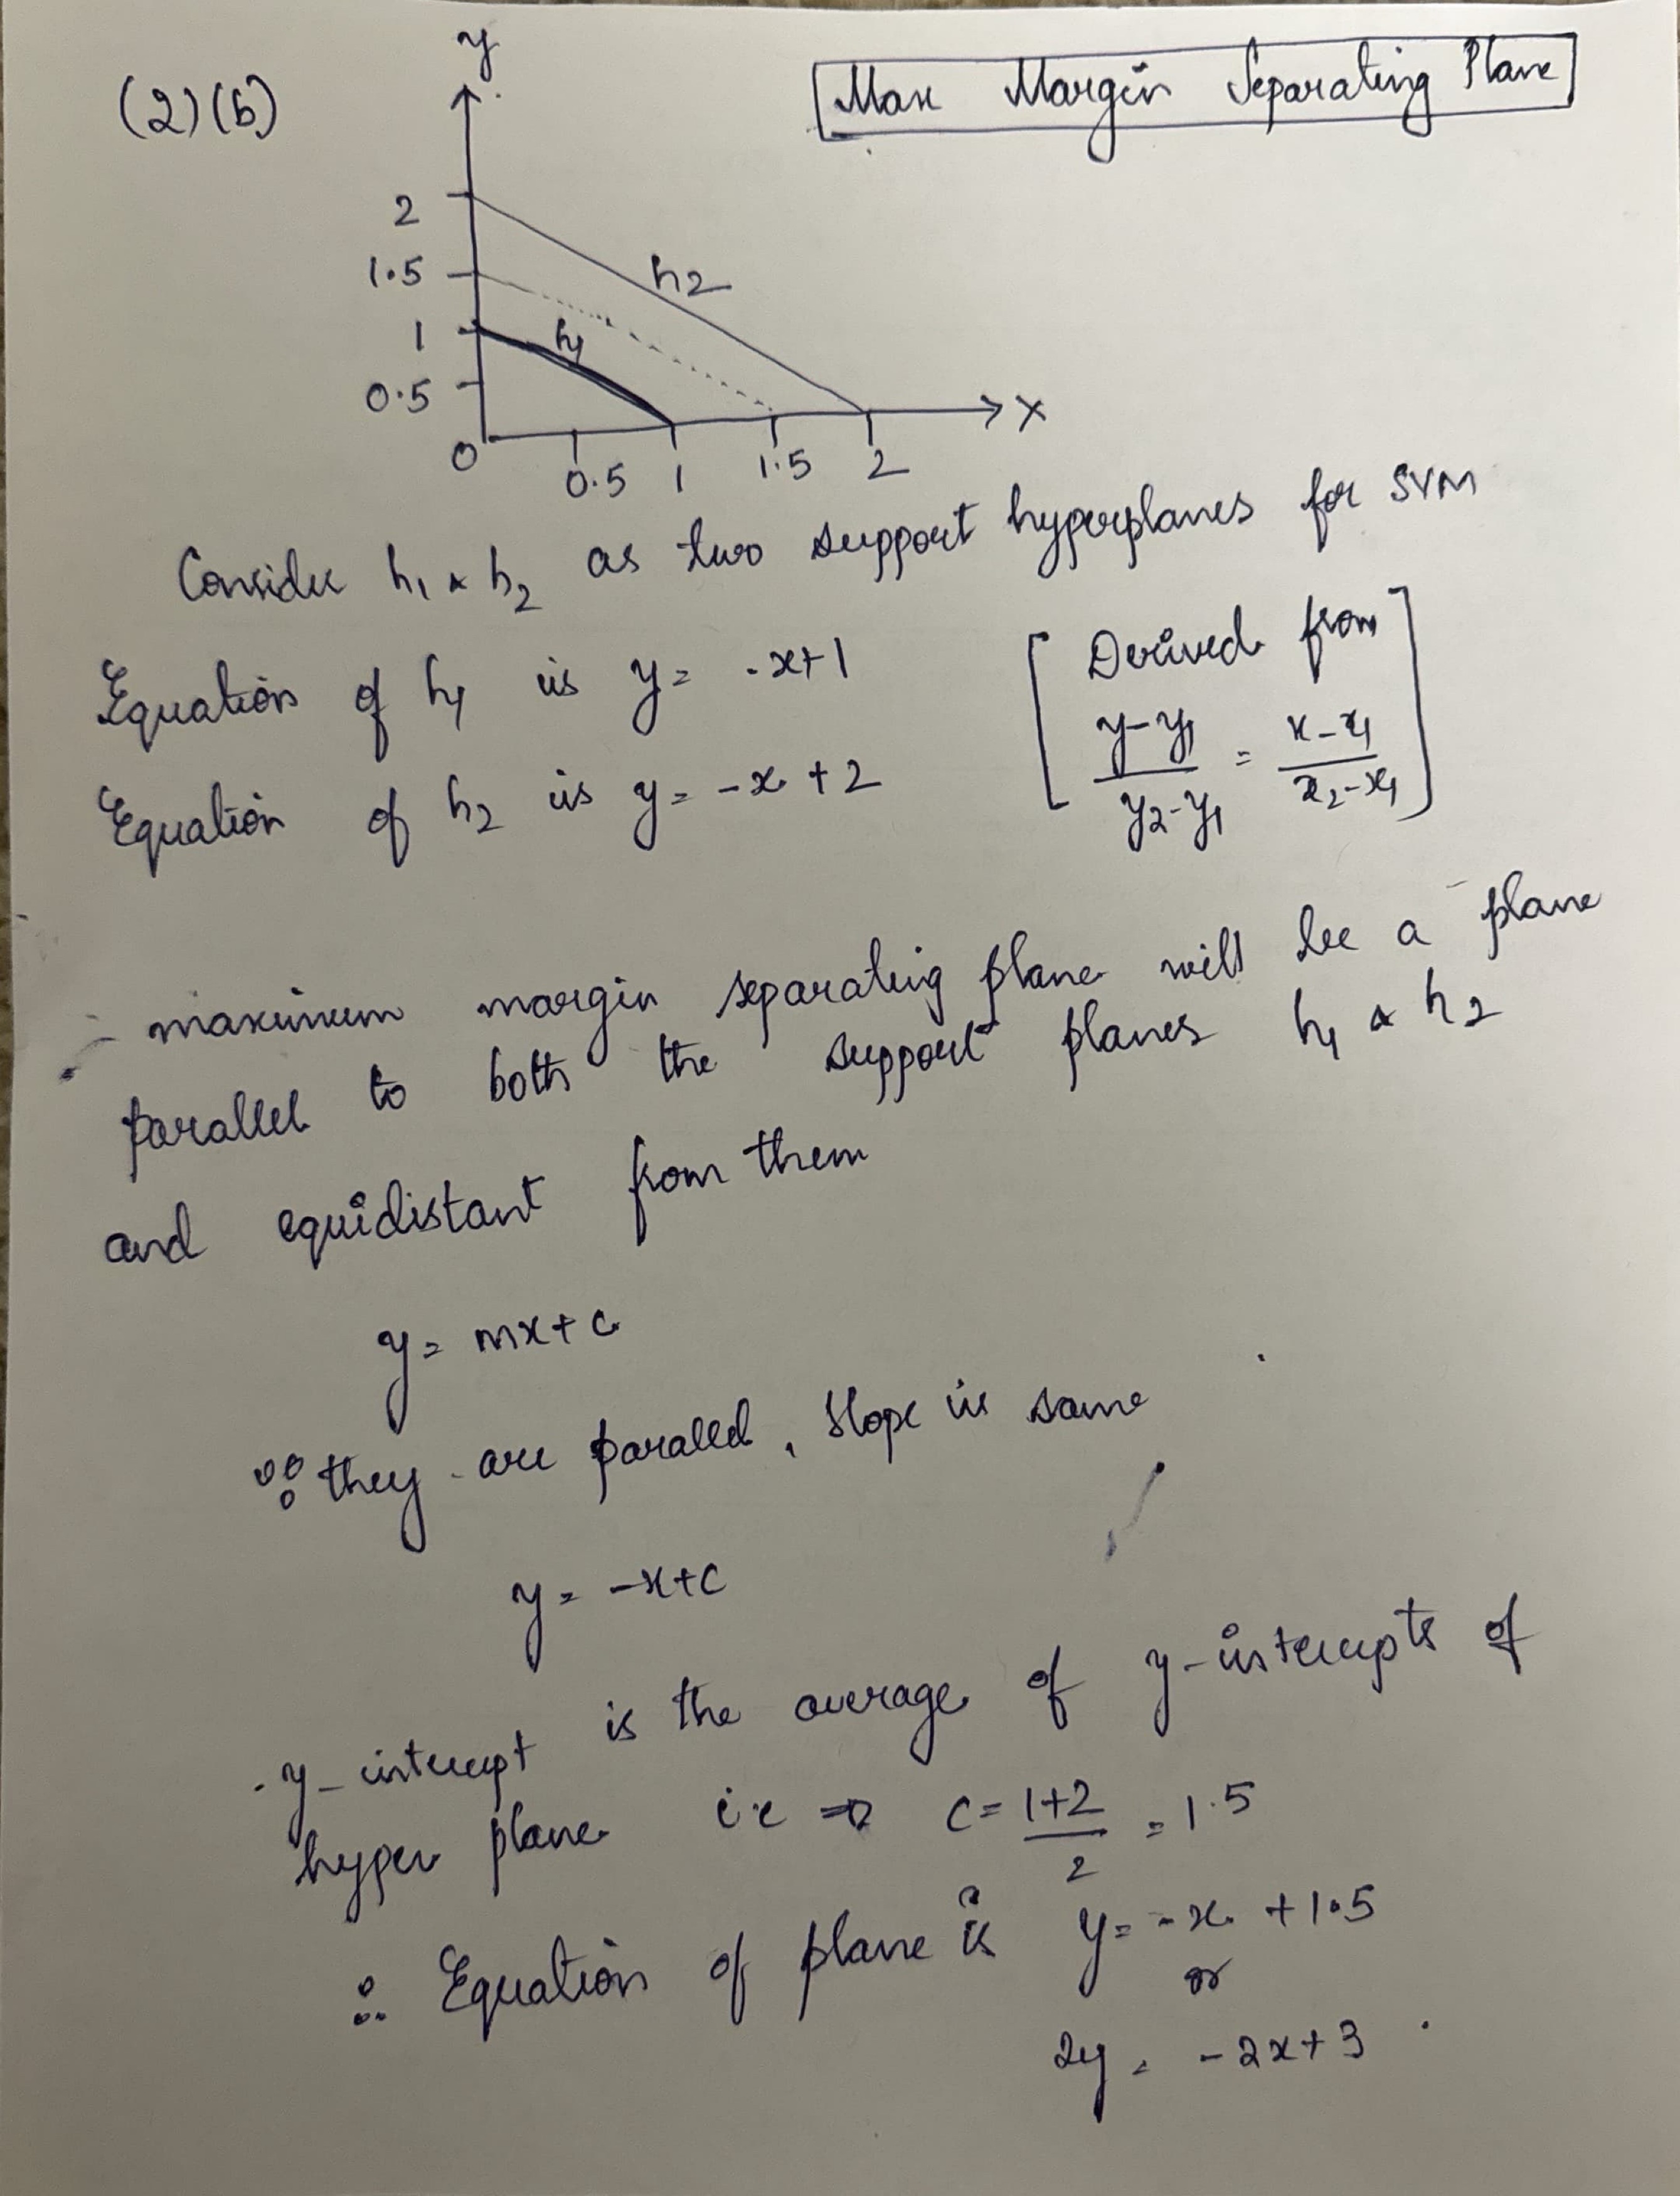 (2)(b)
Max Margin Separating Plane
y
2
1.5
1
0.5
0
h2
h1
0.5 1 1.5 2
X
Consider h₁ & h₂ as two support hyperplanes for SVM
Equation of h₁ is y = -x+1
Equation of h₂ is y = -x + 2
[ Derived from
(y-y₁)/(y₂-y₁) = (x-x₁)/(x₂-x₁) ]
- maximum margin separating plane will be a plane
parallel to both the support planes h₁ & h₂
and equidistant from them
y = mx+c
∵ they are parallel, slope is same
y = -x+c
y-intercept is the average of y-intercepts of
hyper plane i.e ⇒ c = (1+2)/2 = 1.5
∴ Equation of plane is y = -x + 1.5
or
2y = -2x+3